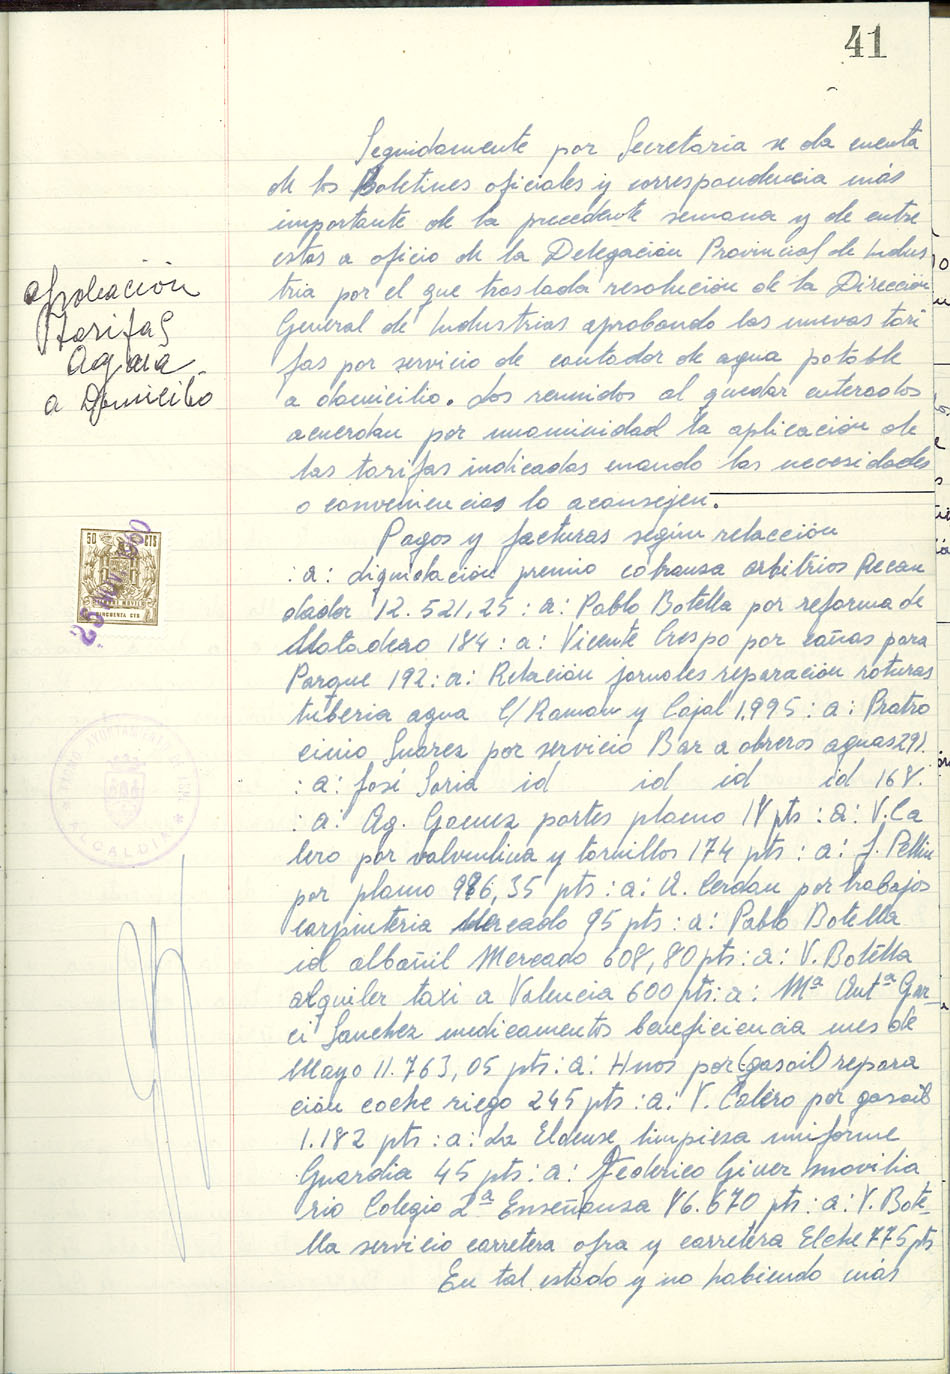 41
Seguidamente por Secretaria se da cuenta
de los Boletines oficiales y correspondencia más
importante de la precedente semana y de entre
estos a oficio de la Delegación Provincial de Indus
tria por el que traslada resolución de la Dirección
General de Industrias aprobando las nuevas tari
fas por servicio de contador de agua potable
a domicilio. Los reunidos al quedar enterados
acuerdan por unanimidad la aplicación de
las tarifas indicadas cuando las necesidades
o conveniencias lo aconsejen.
aprobación
tarifas
agua
a Domicilio
Pagos y facturas según relacción
: a: liquidación premio cobranza arbitrios Recau
dador 12.521,25 : a: Pablo Botella por reforma de
Matadero 184 : a: Vicente Crespo por cañas para
Parque 192: a: Relación jornales reparación roturas
tuberia agua C/ Ramon y Cajal 1.995 : a: Patro
cinio Suarez por servicio Bar a obreros aguas 291.
: a: José Soria id id id id 168.
: a: Ag. Gomez portes plomo 18 pts : a: V. Ca
lero por valvulina y tornillos 174 pts : a: J. Pellin
por plomo 986,35 pts : a: A. Cerdan por trabajos
carpinteria Mercado 95 pts : a: Pablo Botella
id albañil Mercado 608,80 pts: a: V. Botella
alquiler taxi a Valencia 600 pts: a: Mª Antª Gar-
ci Sanchez medicamentos beneficiencia mes de
Mayo 11.763,05 pts : a: Hnos por (gasoil) repara
ción coche riego 245 pts : a: V. Calero por gasoil
1.182 pts : a: La Eldense limpieza uniforme
Guardia 45 pts: a: Federico Giner movilia
rio Colegio 2ª Enseñanza 86.670 pts : a: V. Bote-
lla servicio carretera ofra y carretera Elche 775 pts
En tal estado y no habiendo más
50 CTS
CINCUENTA CTS
25 NOV. 1960
AYUNTAMIENTO
ALCALDIA